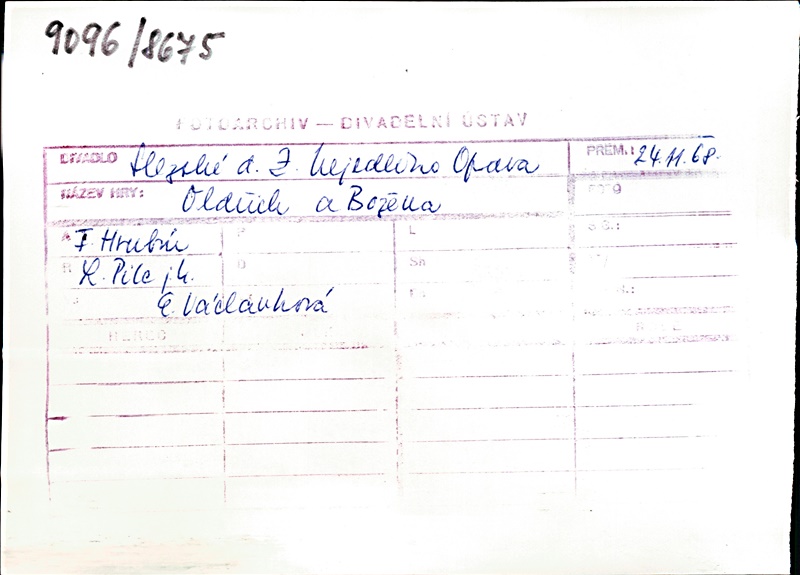 9096/8675
FOTOARCHIV — DIVADELNÍ ÚSTAV
DIVADLO Slezské d. Z. Nejedlého Opava PREM.: 24.11.68.
NÁZEV HRY: Oldřich a Božena
A F Hrubín P L
R K. Pilc j.h. D Sn
E. Václavková
HEREC